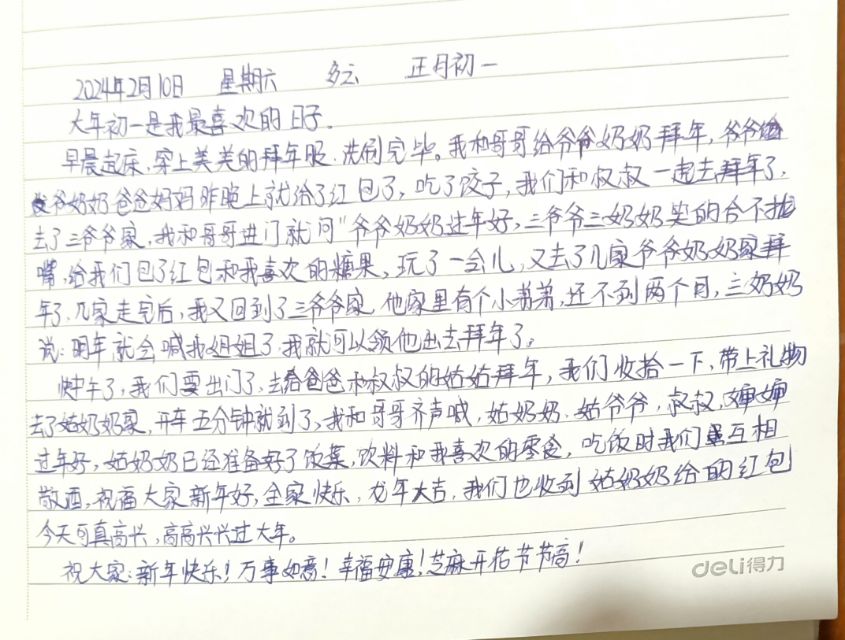 2024年2月10日 星期六 多云 正月初一
大年初一是我最喜欢的日子.
早晨起床,穿上美美的拜年服,洗刷完毕。我和哥哥给爷爷奶奶拜年,爷爷
爷奶奶爸爸妈妈昨晚上就给了红包了,吃了饺子,我们和叔叔一起去拜年了,
去了三爷爷家,我和哥哥进门就问"爷爷奶奶过年好,三爷爷三奶奶笑的合不拢
嘴,给我们包了红包和我喜欢的糖果,玩了一会儿,又去了几家爷爷奶奶家拜
年了.几家走完后,我又回到了三爷爷家,他家里有个小弟弟,还不到两个月,三奶奶
说:明年就会喊我姐姐了,我就可以领他出去拜年了。
快中午了,我们要出门了,去给爸爸和叔叔的姑姑拜年,我们收拾一下,带上礼物
去了姑奶奶家,开车五分钟就到了,我和哥哥齐声喊,姑奶奶.姑爷爷,叔叔,婶婶
过年好,姑奶奶已经准备好了饭菜,饮料和我喜欢的零食,吃饭时我们互相
敬酒,祝福大家新年好,全家快乐,龙年大吉,我们也收到姑奶奶给的红包
今天可真高兴,高高兴兴过大年。
祝大家:新年快乐!万事如意!幸福安康!芝麻开花节节高!
deli得力